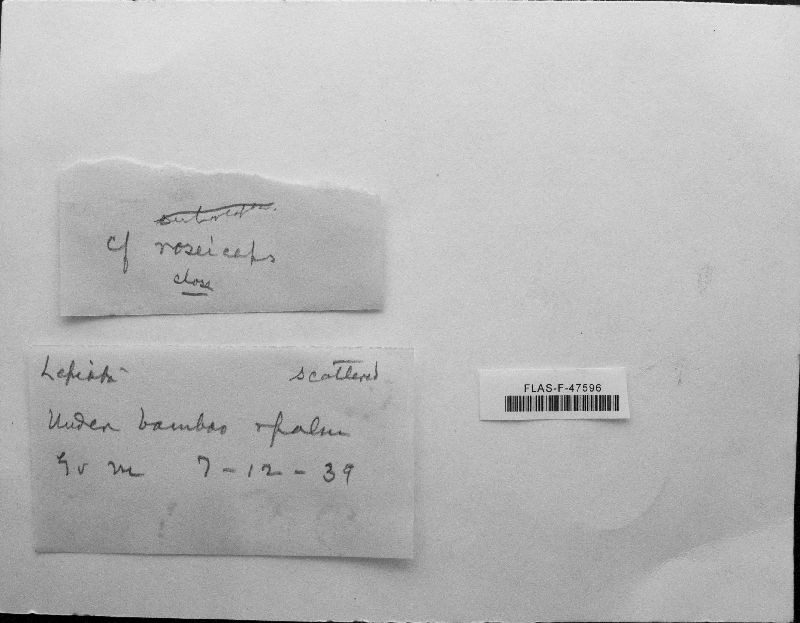 cf roseiceps
close
Lepiota scattered
Under bamboo & palm
7-12-39
FLAS-F-47596